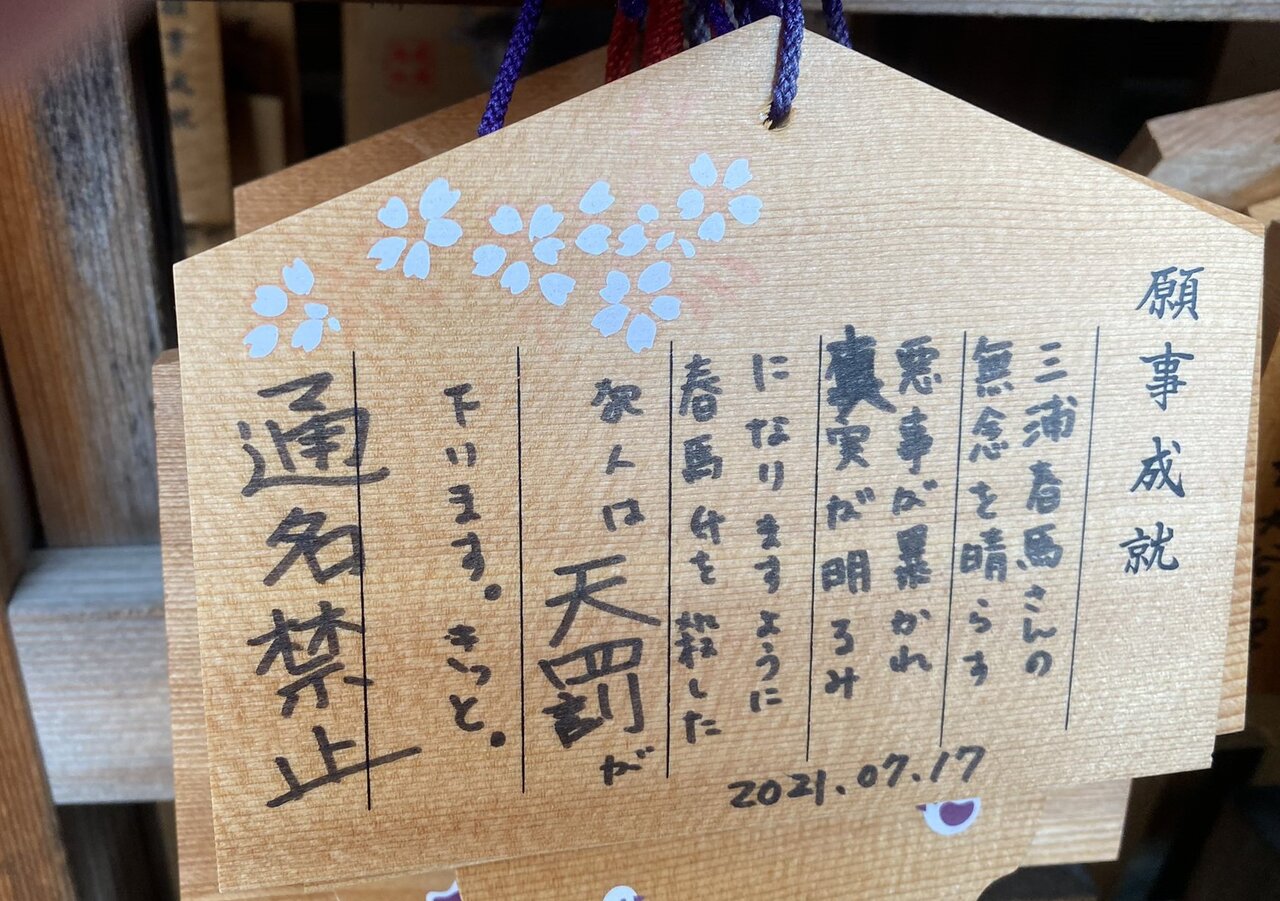 願事成就
三浦春馬さんの
無念を晴らす
悪事が暴かれ
真実が明るみ
になりますように
春馬くんを殺した
犯人は天罰が
下ります。きっと。
通名禁止
2021.07.17